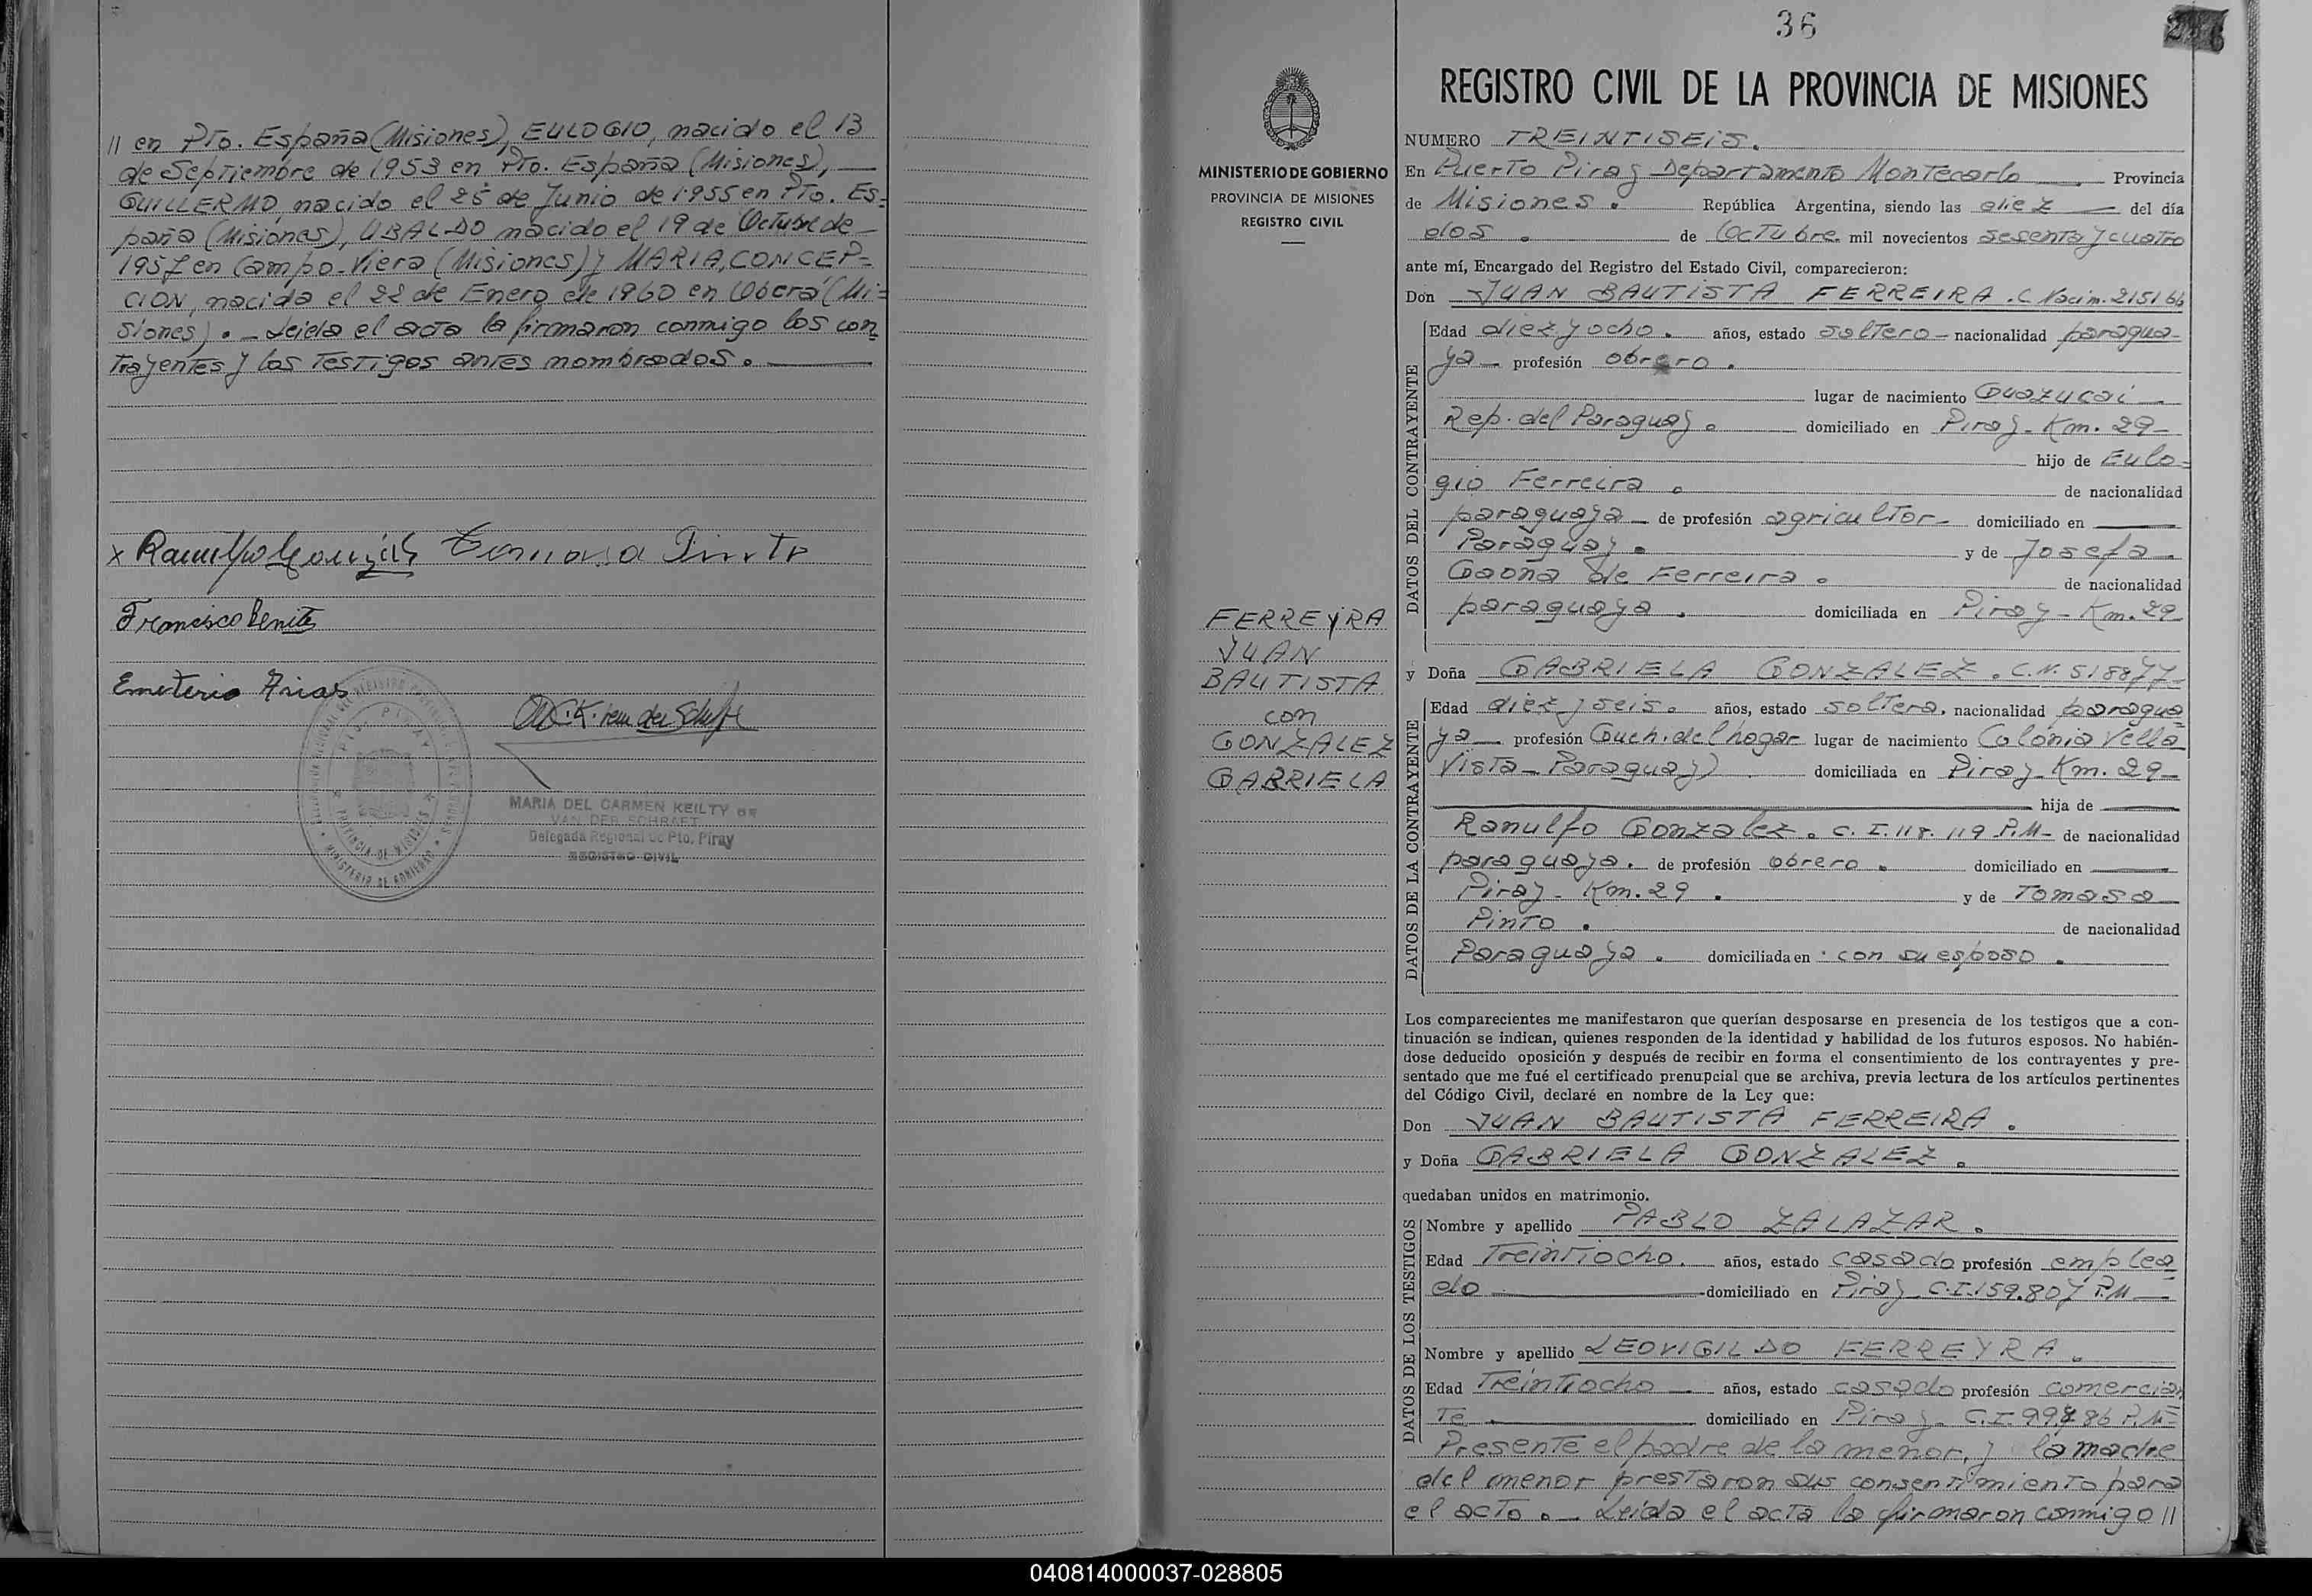 // en Pto. España (Misiones), EULOGIO, nacido el 13
de Septiembre de 1953 en Pto. España (Misiones), —
GUILLERMO, nacido el 25 de Junio de 1955 en Pto. Es=
paña (Misiones), UBALDO nacido el 19 de Octubre de —
1957 en Campo-Viera (Misiones) y MARIA, CONCEP=
CION, nacida el 22 de Enero de 1960 en Oberá (Mi=
siones). — Leida el acta la firmaron conmigo los con
trayentes y los Testigos antes nombrados. —
x Ranulfo González Tomasa Pinto
Francisco Benitez
Emeterio Arias
PTO. PIRAY
PROVINCIA DE MISIONES
MINISTERIO DE GOBIERNO
MARIA DEL CARMEN KEILTY DE
VAN DER SCHRAFT
Delegada Regional de Pto. Piray
REGISTRO CIVIL
MINISTERIO DE GOBIERNO
PROVINCIA DE MISIONES
REGISTRO CIVIL
FERREYRA
JUAN
BAUTISTA
con
GONZALEZ
GABRIELA
36
REGISTRO CIVIL DE LA PROVINCIA DE MISIONES
NUMERO TREINTISEIS.
En Puerto Piray Departamento Montecarlo —. Provincia
de Misiones. República Argentina, siendo las diez — del día
dos. de Octubre mil novecientos sesenta y cuatro
ante mí, Encargado del Registro del Estado Civil, comparecieron:
Don JUAN BAUTISTA FERREIRA. C. Nacim. 215166
DATOS DEL CONTRAYENTE
Edad diez y ocho. años, estado soltero — nacionalidad paragua-
ya — profesión obrero.
lugar de nacimiento Guazucai —
Rep. del Paraguay. domiciliado en Piray- Km. 29-
hijo de Eulo=
gio Ferreira. de nacionalidad
paraguaya — de profesión agricultor — domiciliado en —
Paraguay. y de Josefa
Gaona de Ferreira. de nacionalidad
paraguaya. domiciliada en Piray- Km. 29
y Doña GABRIELA GONZALEZ. C.N. 518877-
DATOS DE LA CONTRAYENTE
Edad diez y seis. años, estado soltera. nacionalidad paragua
ya — profesión Queh. del hogar lugar de nacimiento Colonia Vella
Vista- Paraguay) domiciliada en Piray- Km. 29-
hija de —
Ranulfo Gonzalez. C. I. 118. 119 P.M- de nacionalidad
paraguaya. de profesión obrero. domiciliado en —
Piray- Km. 29. y de Tomasa
Pinto. de nacionalidad
Paraguaya. domiciliada en con su esposo.
Los comparecientes me manifestaron que querían desposarse en presencia de los testigos que a con-
tinuación se indican, quienes responden de la identidad y habilidad de los futuros esposos. No habién-
dose deducido oposición y después de recibir en forma el consentimiento de los contrayentes y pre-
sentado que me fué el certificado prenupcial que se archiva, previa lectura de los artículos pertinentes
del Código Civil, declaré en nombre de la Ley que:
Don JUAN BAUTISTA FERREIRA.
y Doña GABRIELA GONZALEZ.
quedaban unidos en matrimonio.
DATOS DE LOS TESTIGOS
Nombre y apellido PABLO ZALAZAR.
Edad Treintiocho. años, estado casado profesión emplea
do — domiciliado en Piray C.I. 159.807 P.M —
Nombre y apellido LEOVIGILDO FERREYRA.
Edad Treintiocho — años, estado casado profesión comercian
Te — domiciliado en Piray- C.I. P.M=
Presente el padre de la menor, y la madre
del menor prestaron sus consentimiento para
el acto. — Leida el acta la firmaron conmigo //
040814000037-028805